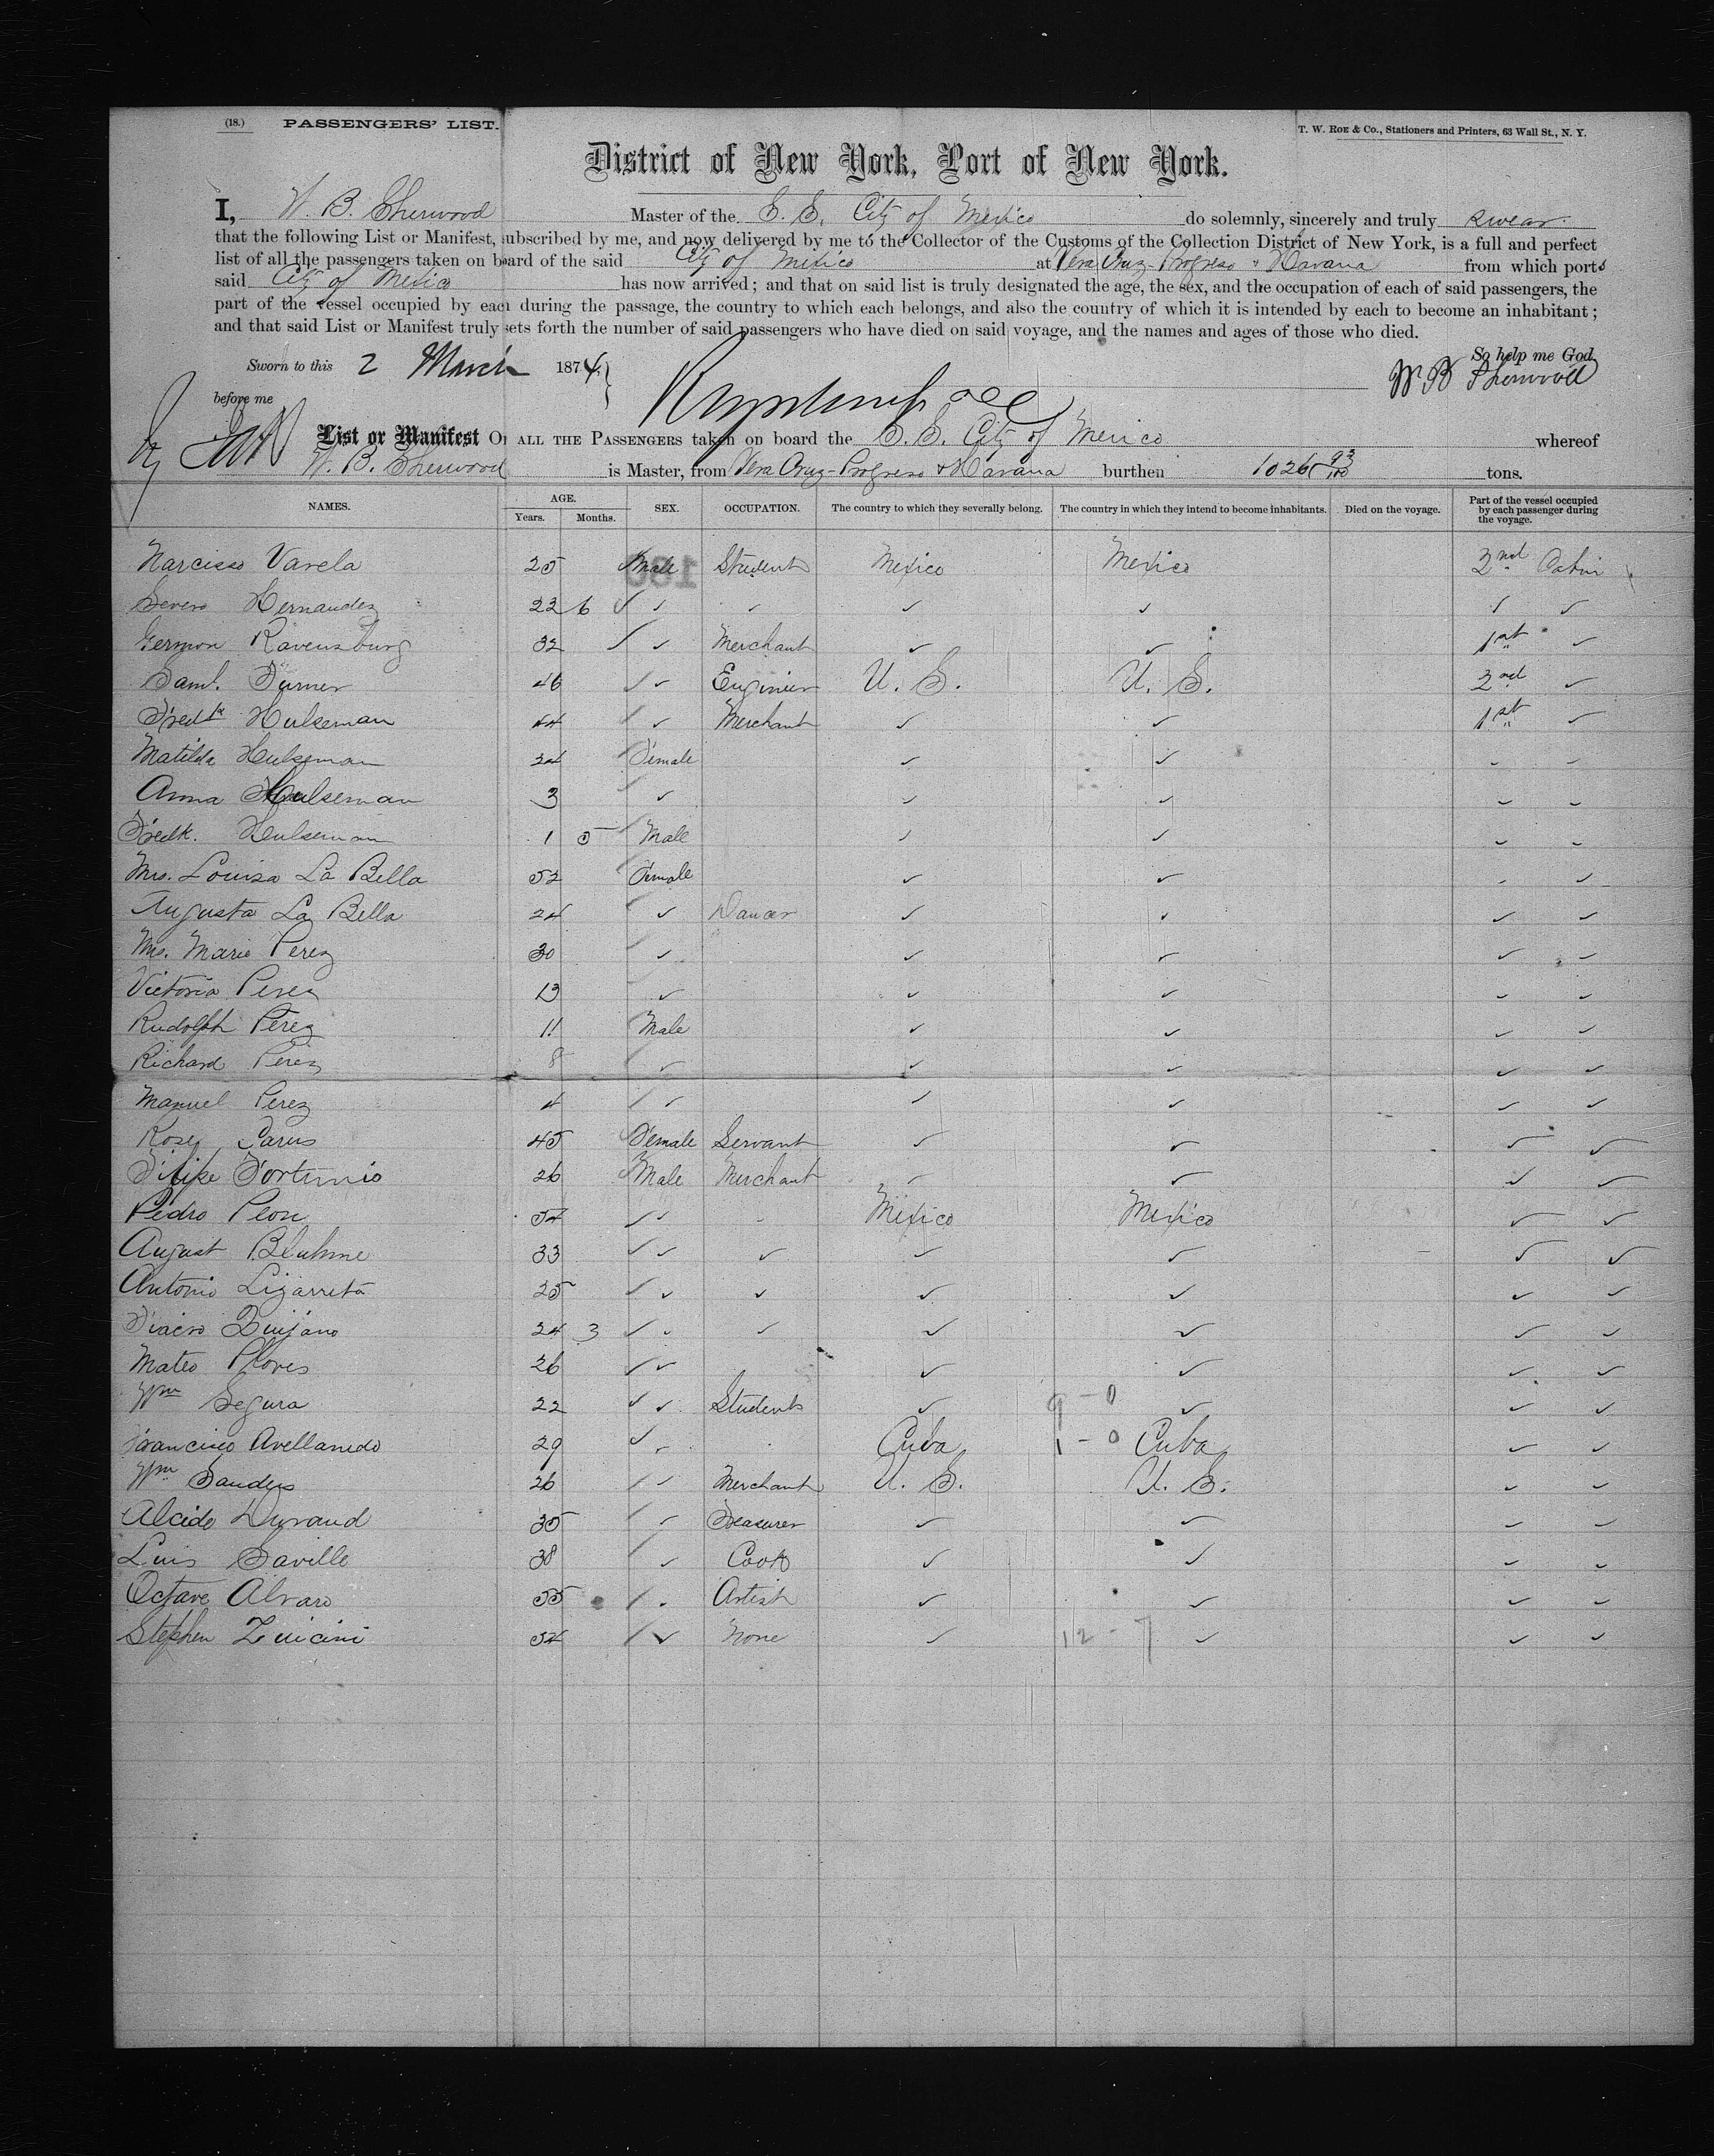 (18.) PASSENGERS' LIST. T. W. ROE & Co., Stationers and Printers, 63 Wall St., N. Y.
District of New York, Port of New York.
I, W. B. Sherwood Master of the S. S. City of Mexico do solemnly, sincerely and truly swear
that the following List or Manifest, subscribed by me, and now delivered by me to the Collector of the Customs of the Collection District of New York, is a full and perfect
list of all the passengers taken on board of the said City of Mexico at Vera Cruz - Progreso & Havana from which ports
said City of Mexico has now arrived; and that on said list is truly designated the age, the sex, and the occupation of each of said passengers, the
part of the vessel occupied by each during the passage, the country to which each belongs, and also the country of which it is intended by each to become an inhabitant;
and that said List or Manifest truly sets forth the number of said passengers who have died on said voyage, and the names and ages of those who died.
So help me God
Sworn to this 2 March 1874 W B Sherwood
before me
List or Manifest OF ALL THE PASSENGERS taken on board the S. S. City of Mexico whereof
W. B. Sherwood is Master, from Vera Cruz - Progreso & Havana burthen 1026 93/100 tons.
NAMES. AGE. Years. Months. SEX. OCCUPATION. The country to which they severally belong. The country in which they intend to become inhabitants. Died on the voyage. Part of the vessel occupied by each passenger during the voyage.
Narcisso Varela 25 Male Student Mexico Mexico 2nd Cabin
Severo Hernandez 22 6 ✓ ✓ ✓ ✓ ✓ ✓
German Ravensburg 32 ✓ Merchant ✓ ✓ 1st ✓
Saml. Turner 46 ✓ Engineer U. S. U. S. 2nd ✓
Fredk Hulseman 44 ✓ Merchant ✓ ✓ 1st ✓
Matilda Hulseman 34 Female ✓ ✓ ✓ ✓
Anna Hulseman 3 ✓ ✓ ✓ ✓ ✓
Fredk. Hulseman 1 5 Male ✓ ✓ ✓ ✓
Mrs. Louisa La Bella 52 Female ✓ ✓ ✓ ✓
Augusta La Bella 24 ✓ Dancer ✓ ✓ ✓ ✓
Mrs. Marie Perez 30 ✓ ✓ ✓ ✓ ✓
Victoria Perez 13 ✓ ✓ ✓ ✓ ✓
Rudolph Perez 11 Male ✓ ✓ ✓ ✓
Richard Perez 8 ✓ ✓ ✓ ✓ ✓
Manuel Perez 4 ✓ ✓ ✓ ✓ ✓
Rosey 45 Female Servant ✓ ✓ ✓ ✓
Filipe Fortunio 26 Male Merchant ✓ ✓ ✓ ✓
Pedro Peon 54 ✓ ✓ Mexico Mexico ✓ ✓
August Bluhme 33 ✓ ✓ ✓ ✓ ✓ ✓
Antonio Lizarreta 25 ✓ ✓ ✓ ✓ ✓ ✓
Quijano 24 3 ✓ ✓ ✓ ✓ ✓ ✓
Mateo Flores 26 ✓ ✓ ✓ ✓ ✓
Wm Segura 22 ✓ Students ✓ 9 - 0 ✓ ✓ ✓
Francisco Avellanedo 29 ✓ Cuba 1 - 0 Cuba ✓ ✓
Wm Sanders 26 ✓ Merchant U. S. U. S. ✓ ✓
Alcide Durand 35 ✓ Treasurer ✓ ✓ ✓ ✓
Luis Saville 38 ✓ Cook ✓ ✓ ✓ ✓
Octave Alvaro 55 ✓ Artist ✓ ✓ ✓ ✓
Stephen 54 ✓ None ✓ 12 - 7 ✓ ✓ ✓